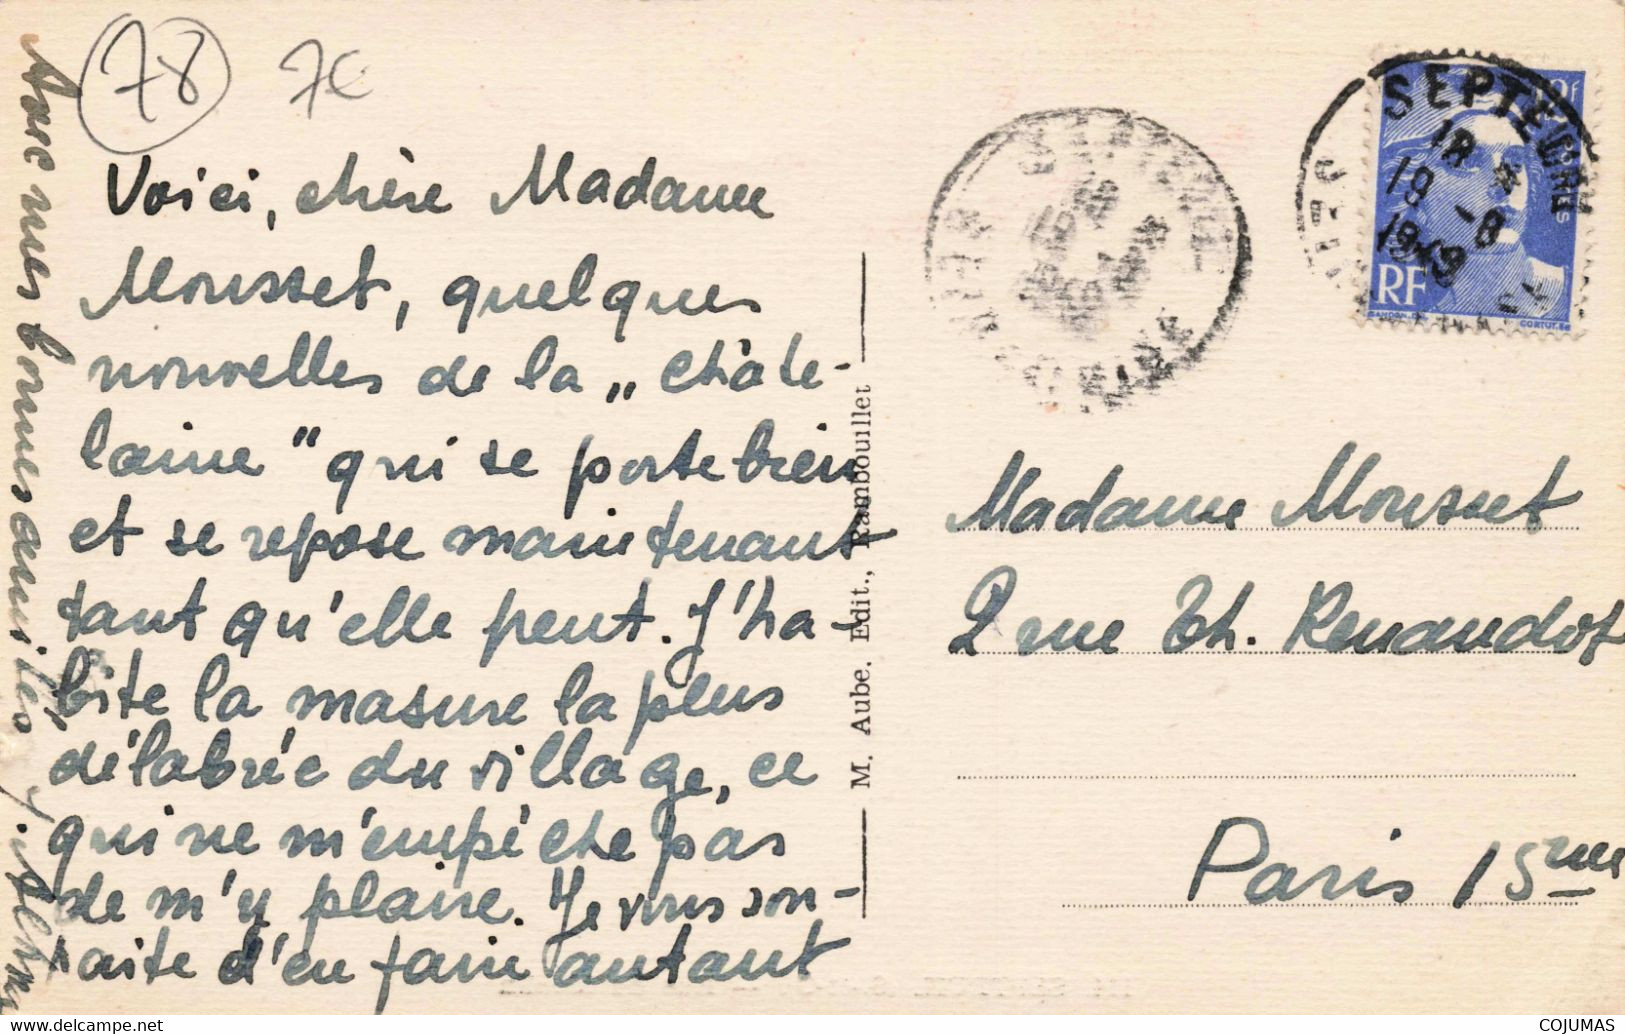 78 7€
Voici, chère Madame
Mousset, quelques
nouvelles de la „châte-
laine" qui se porte bien
et se repose maintenant
tant qu'elle peut. J'ha-
bite la masure la plus
délabrée du village, ce
qui ne m'empêche pas
de m'y plaire. Je vous sou-
haite d'en faire autant
Avec mes bonnes amitiés
M. Aube. Edit., Rambouillet
SEPTEUIL
18
19 -8
1949
12f
POSTES
RF
GANDON
CORTOT
Madame Mousset
2 rue Th. Renaudot
Paris 15me
delcampe.net
COJUMAS